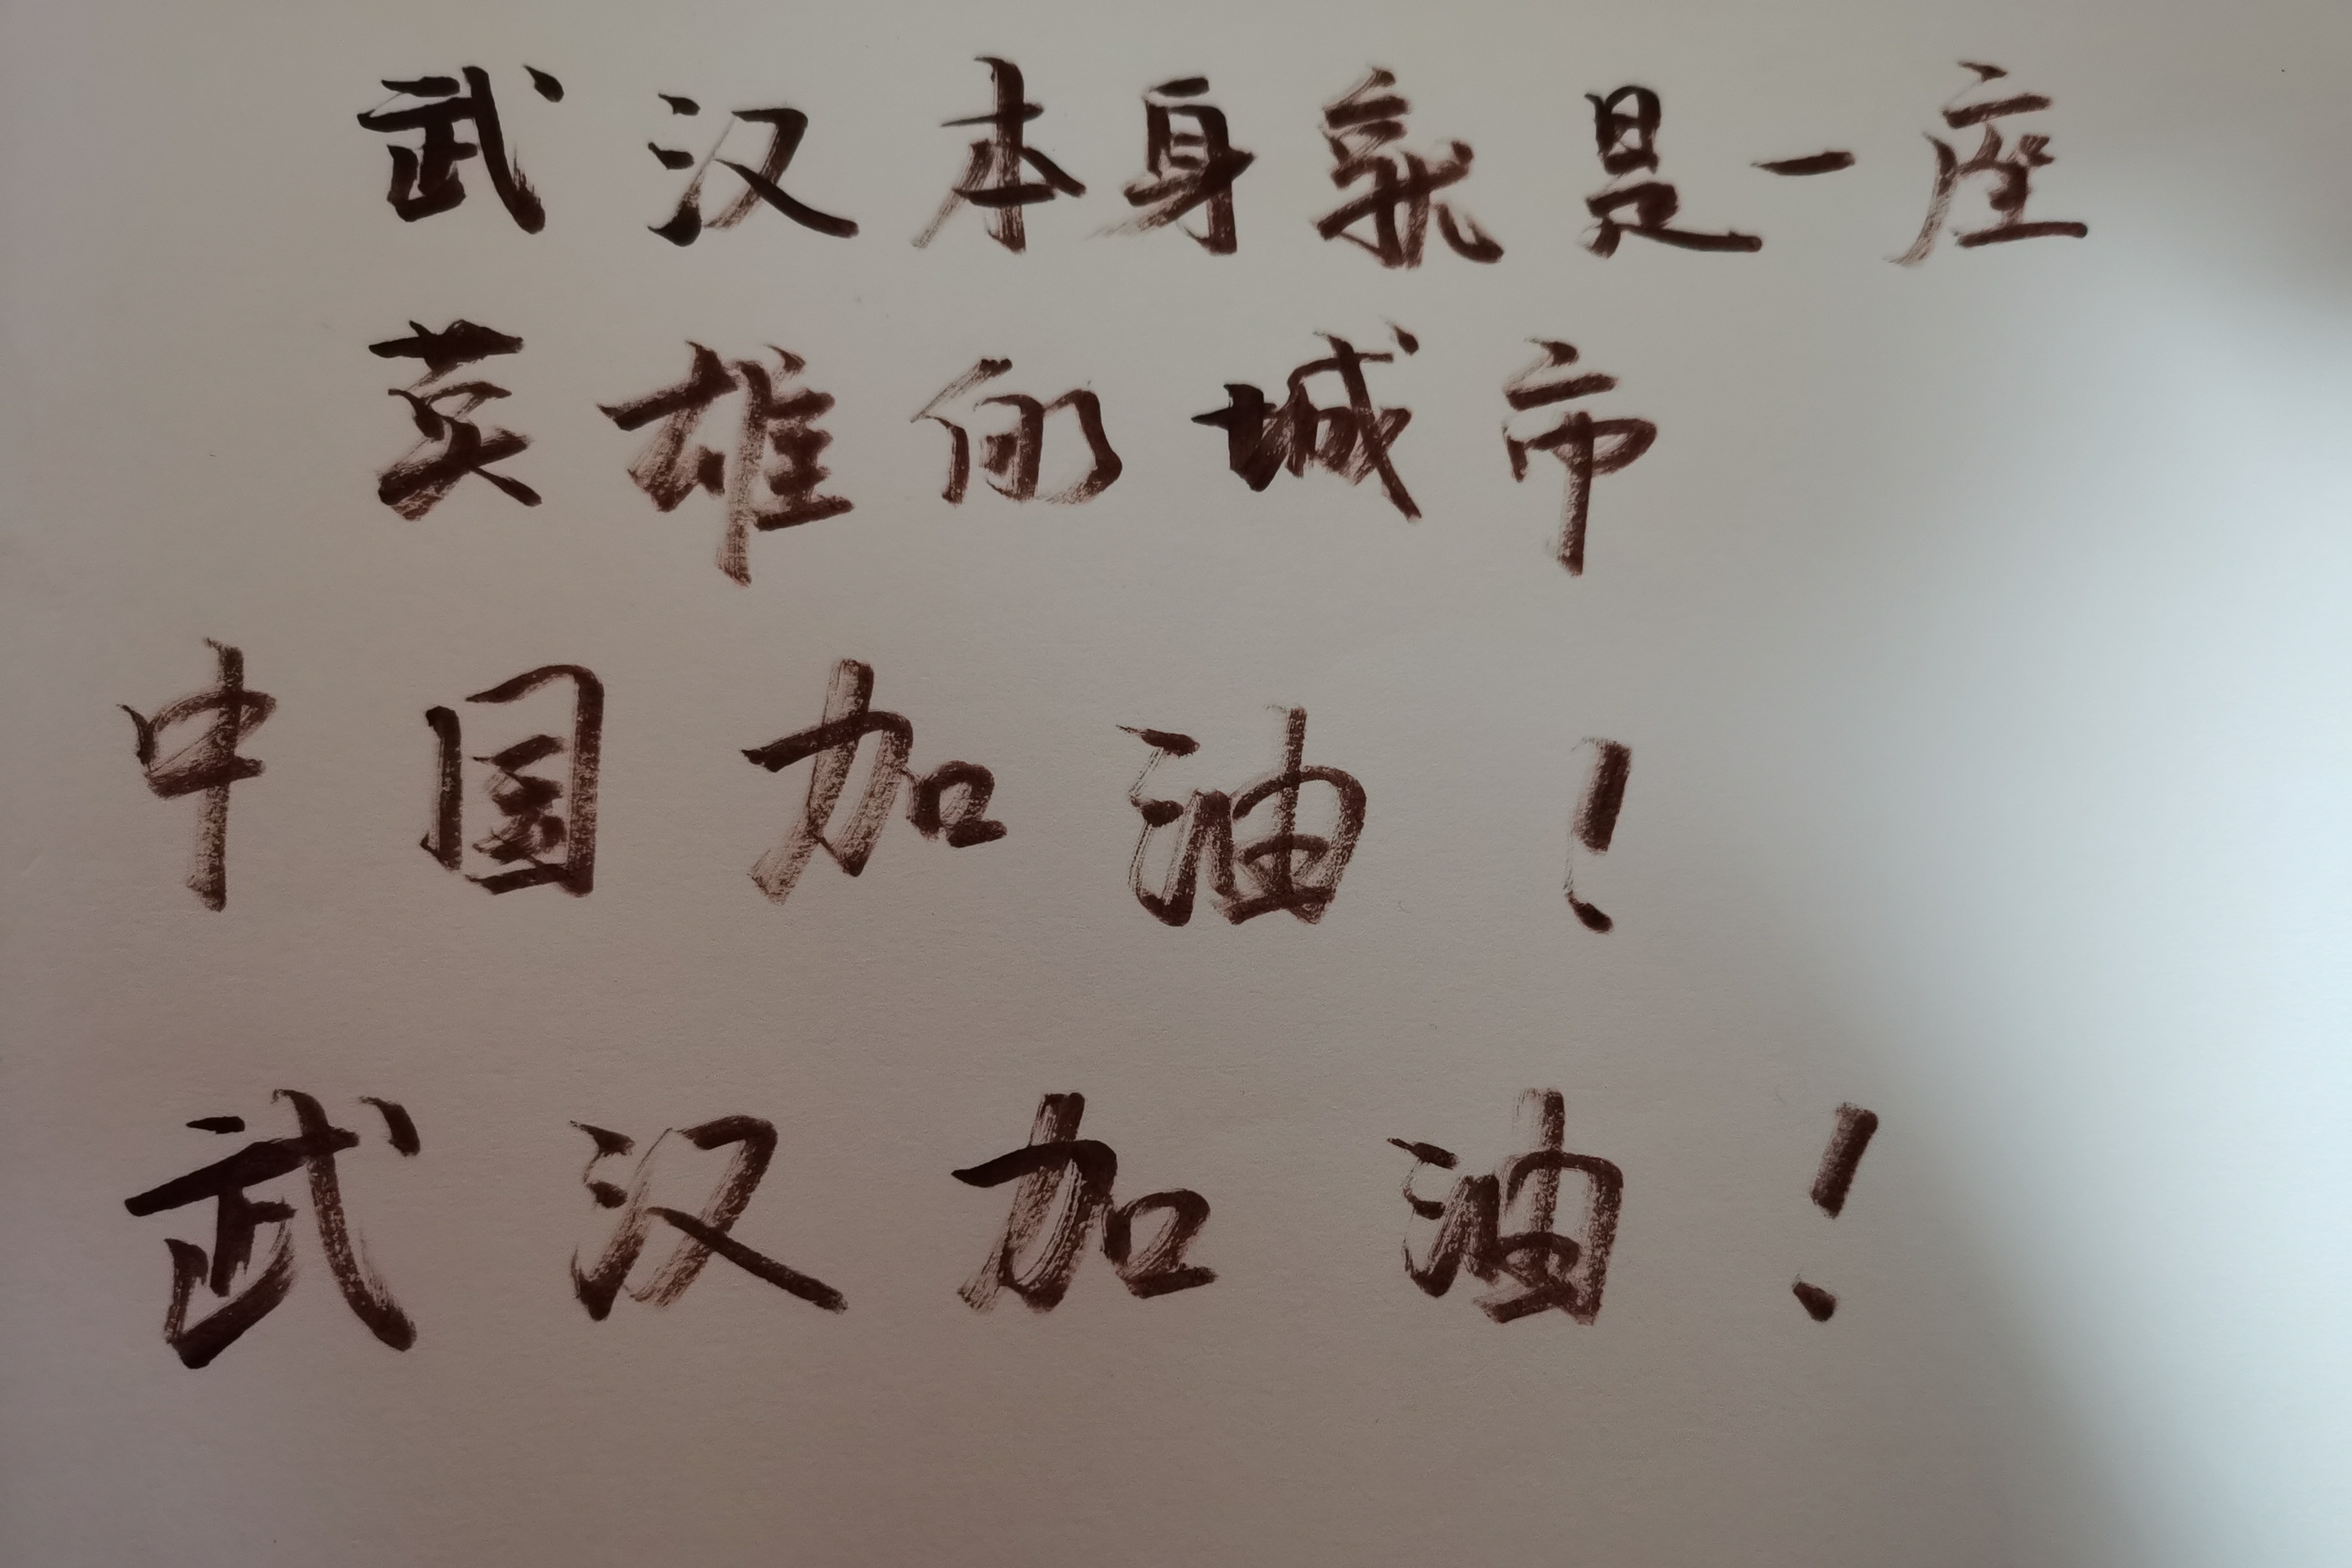 武汉本身就是一座
英雄的城市
中国加油！
武汉加油！